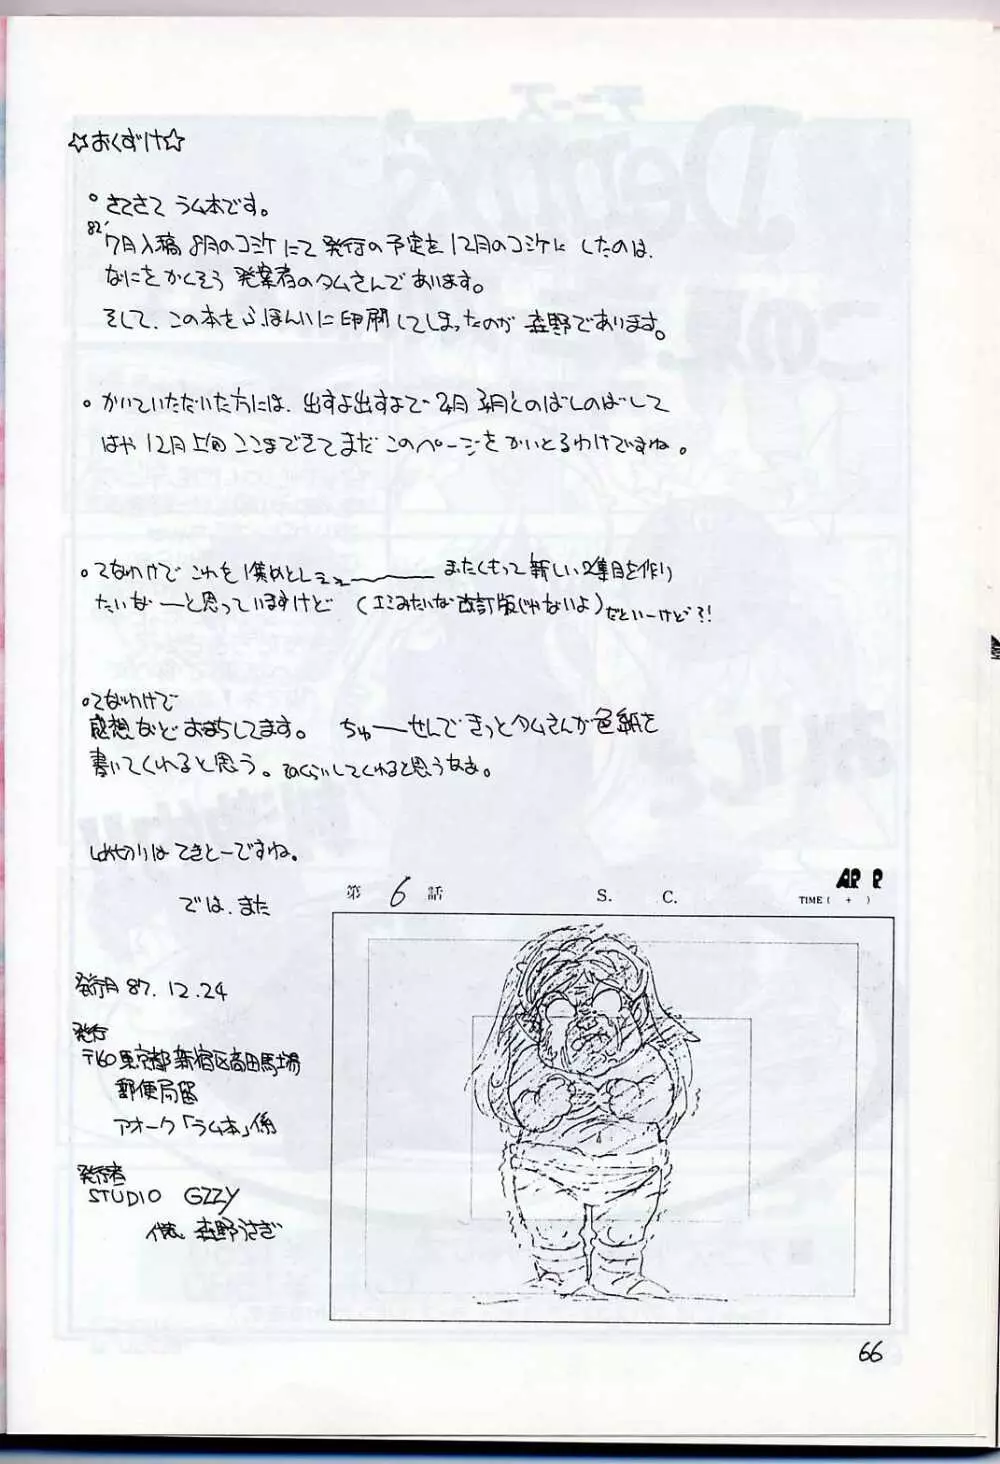 ☆おくずけ☆
° さてさて ラム本です。
82' 7月入稿 8月のコミケにて発行の予定を12月のコミケに したのは、
なにをかくそう 発案者のタムさんであります。
そして、この本をふほんいに印刷してしまったのが 森野であります。
° かいていただいた方には、出すよ出すよで 2月 3月とのばしのばして
はや12月上旬 ここまできてまだ このページをかいとるわけですね。
° てなわけで これを1集めとしてぇ〜 またくもって新しい2集目を作り
たいなーと思っていますけど (エミみたいな改訂版じゃないよ) だといーけど?!
° てなわけで
感想など おまちしてます。 ちゅーせんで きっとタムさんが色紙を
書いてくれると思う。そのくらいしてくれると思うなぁ。
しめ切りは てきとーですね。
では、また
第 6 話 S. C.
TIME ( + )
発行日 87.12.24
発行
〒160 東京都新宿区高田馬場
郵便局留
アオーク「ラム本」係
発行者
STUDIO GZZY
代表 森野うさぎ
66